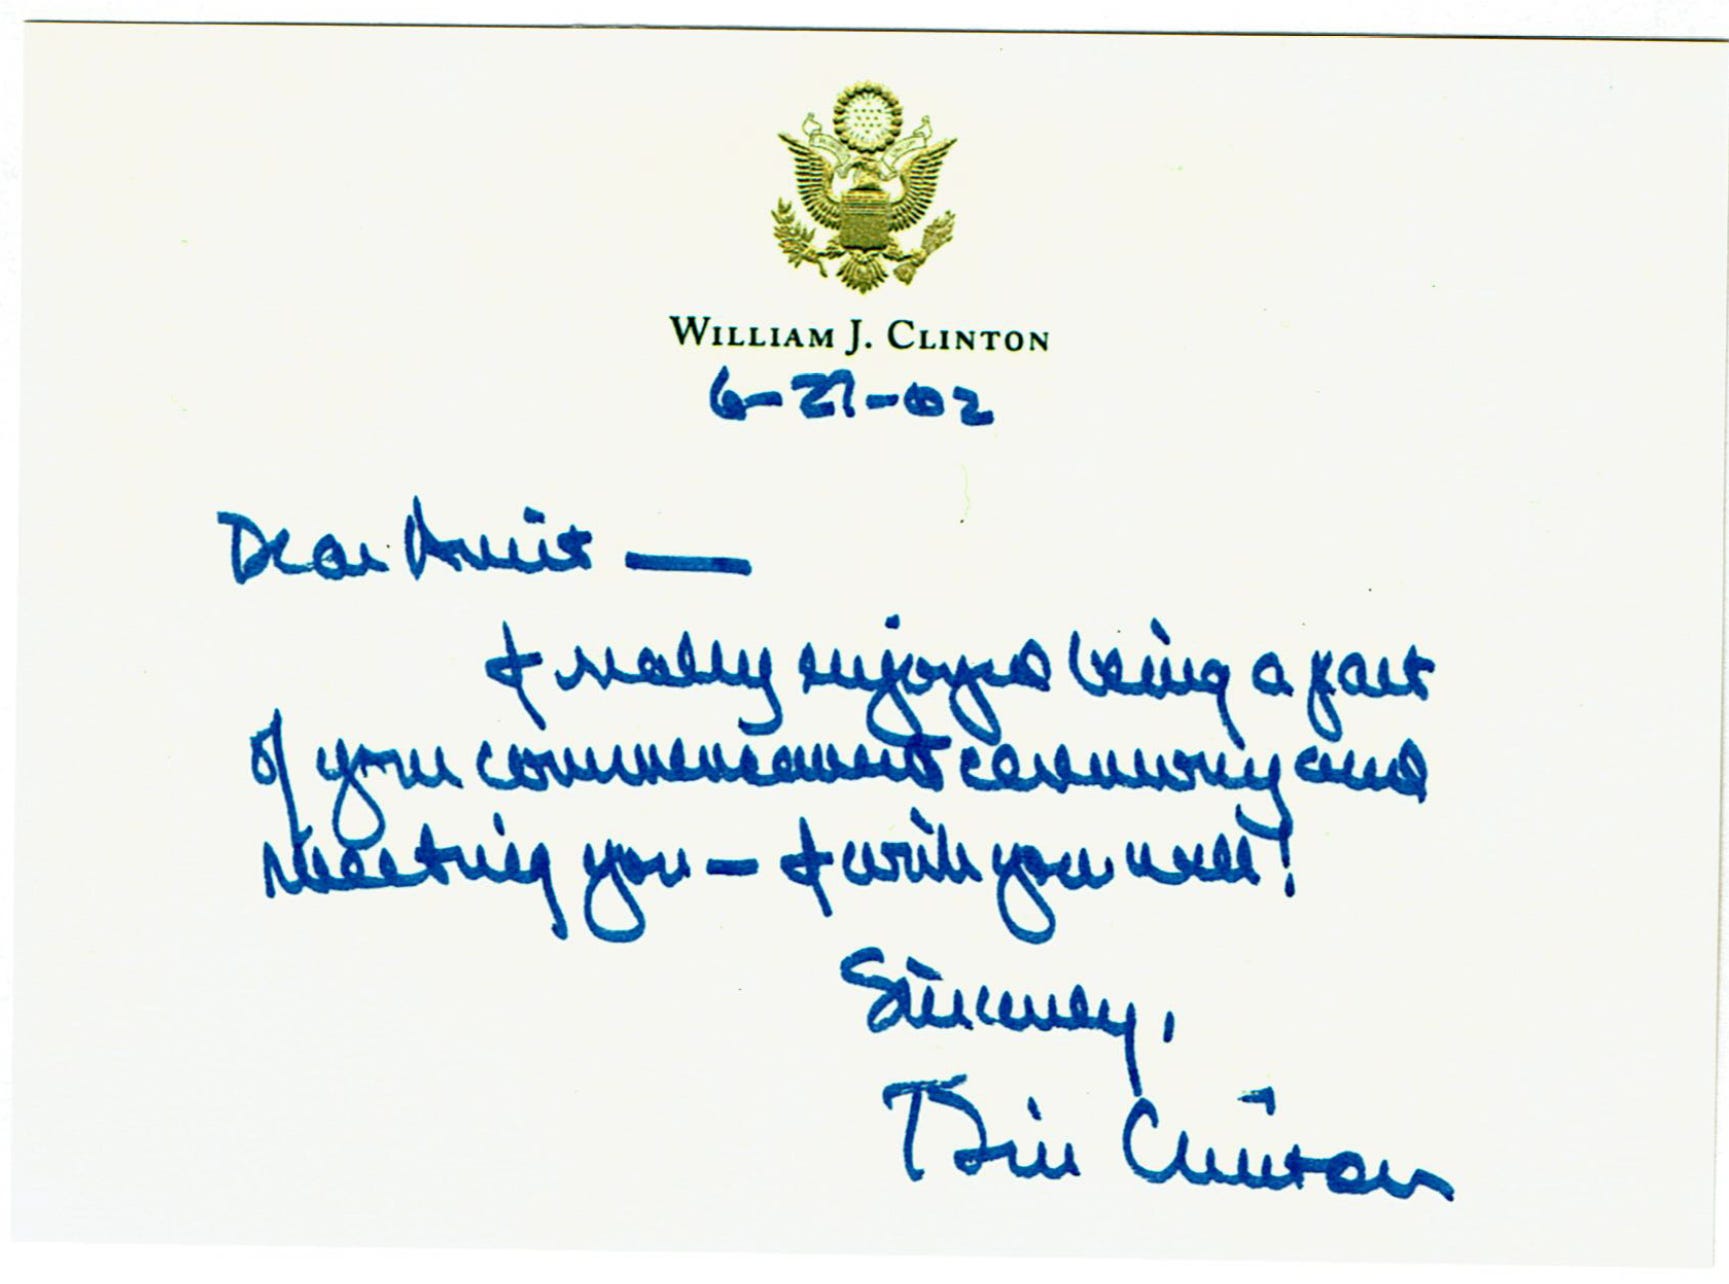 WILLIAM J. CLINTON
6-27-02
Dear Amit —
I really enjoyed being a part
of your commencement ceremony and
meeting you — I wish you well!
Sincerely,
Bill Clinton